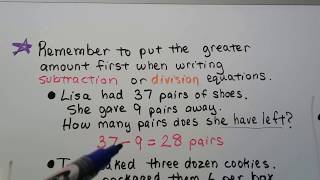 Remember to put the greater
amount first when writing
subtraction or division equations.
• Lisa had 37 pairs of shoes.
She gave 9 pairs away.
How many pairs does she have left?
37 - 9 = 28 pairs
• T baked three dozen cookies.
packaged them 6 per box